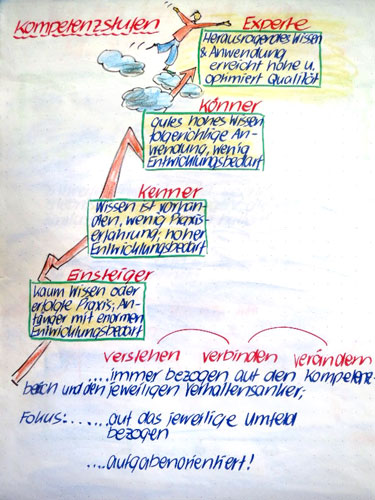 Kompetenzstufen
Experte
Herausragendes Wissen
& Anwendung
erreicht hohe u.
optimiert Qualität
Könner
gutes hohes Wissen
folgerichtige An-
wendung, wenig
Entwicklungsbedarf
Kenner
Wissen ist vorhan-
den, wenig Praxis-
erfahrung; hoher
Entwicklungsbedarf
Einsteiger
kaum Wissen oder
erfolgte Praxis; An-
fänger mit enormen
Entwicklungsbedarf
verstehen verbinden verändern
....immer bezogen auf den Kompetenz-
bereich und den jeweiligen Verhaltensanker;
Fokus:......auf das jeweilige Umfeld
bezogen
....aufgabenorientiert!